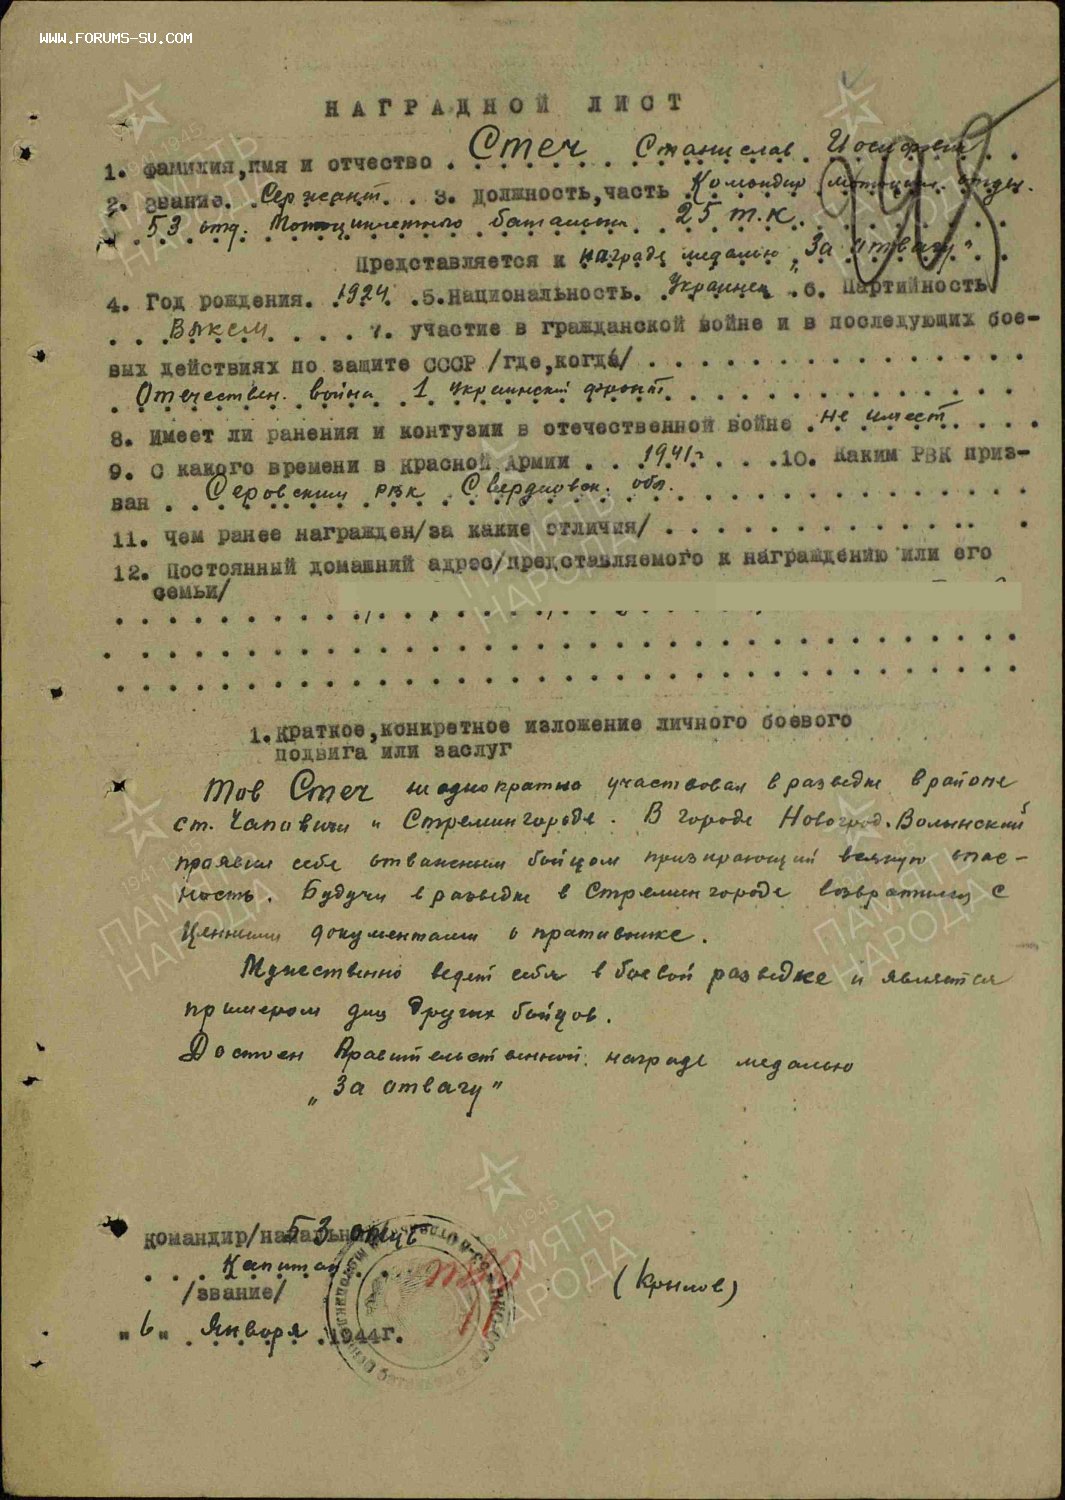 WWW.FORUMS-SU.COM
НАГРАДНОЙ ЛИСТ
1. Фамилия, имя и отчество . Стеч Станислав Иосифович
2. Звание. Сержант. 3. Должность, часть Командир мотоцикл. отдел.
53 отд. Мотоциклетного батальона 25 т.к.
Представляется к награде медалью „За отвагу"
4. Год рождения. 1924 .5. Национальность. Украинец .6. Партийность
7. участие в гражданской войне и в последующих бое-
вых действиях по защите СССР /где, когда/
Отечествен. война 1 Украинский фронт.
8. Имеет ли ранения и контузии в отечественной войне . не имеет
9. С какого времени в Красной Армии . . 1941г . . . 10. Каким РВК приз-
ван . Серовским РВК Свердловск. обл.
11. Чем ранее награжден/за какие отличия/
12. Постоянный домашний адрес/представляемого к награждению или его
семьи/
1. Краткое, конкретное изложение личного боевого
подвига или заслуг
Тов Стеч неоднократно участвовал в разведке в районе
ст. Чаповичи и Стремингорода. В городе Новоград-Волынский
проявил себя отважным бойцом призирающий всякую опас-
ность. Будучи в разведке в Стремингороде возвратился с
ценными документами о противнике.
Мужественно ведет себя в боевой разведке и является
примером для других бойцов.
Достоен Правительственной награде медалью
„За отвагу"
Командир/начальник 53 омцб
Капитан (Крылов)
/звание/
"6" Января 1944г.
ПАМЯТЬ НАРОДА
1941-1945